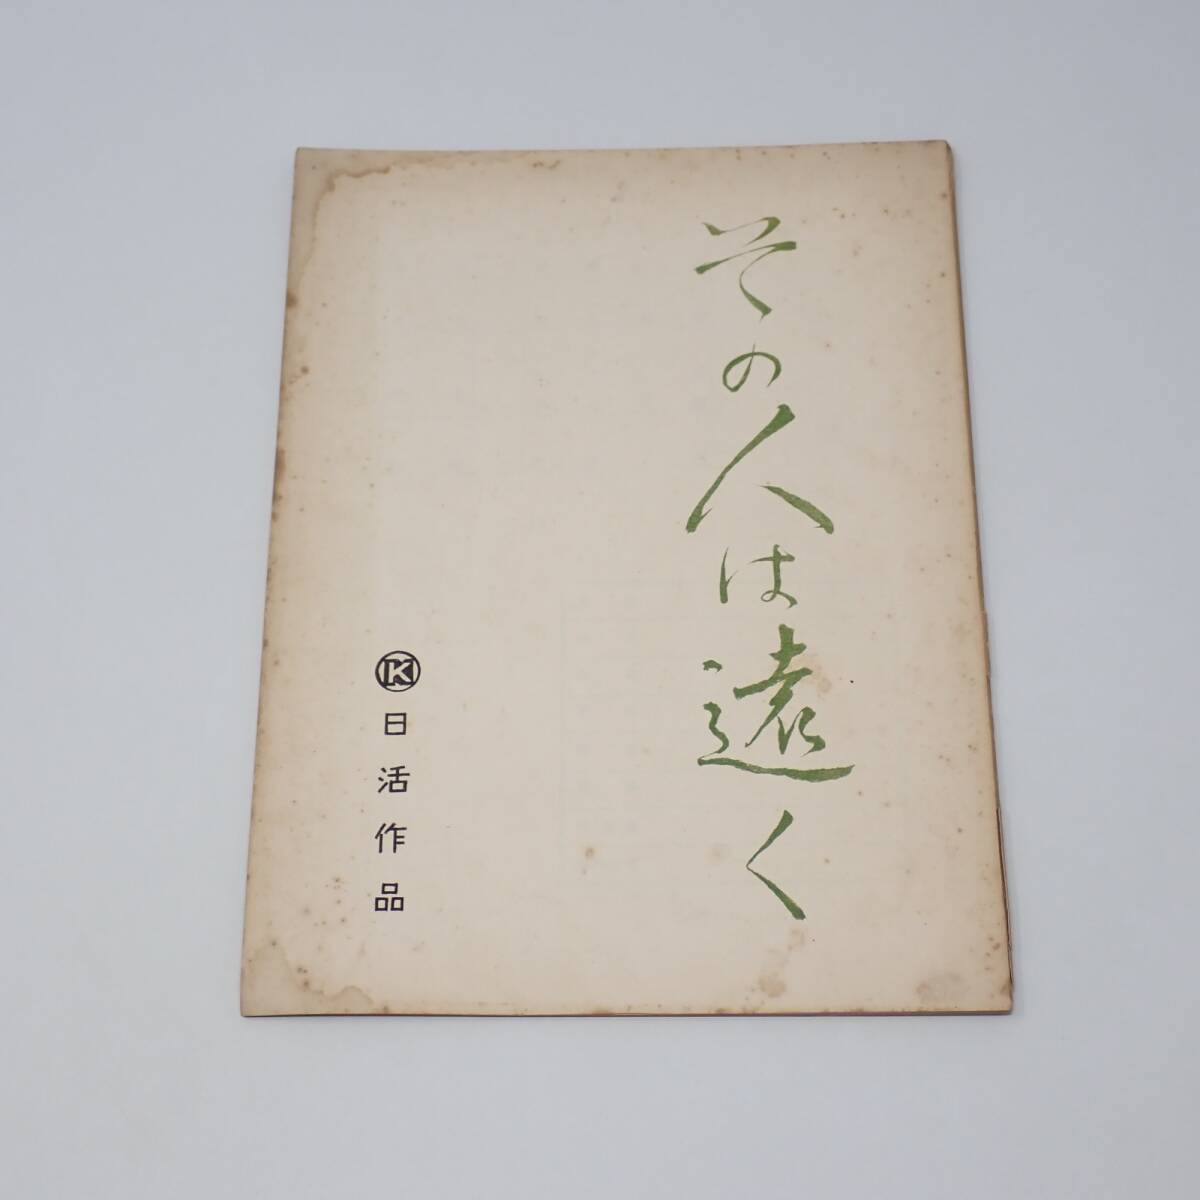 その人は遠く
K日活作品